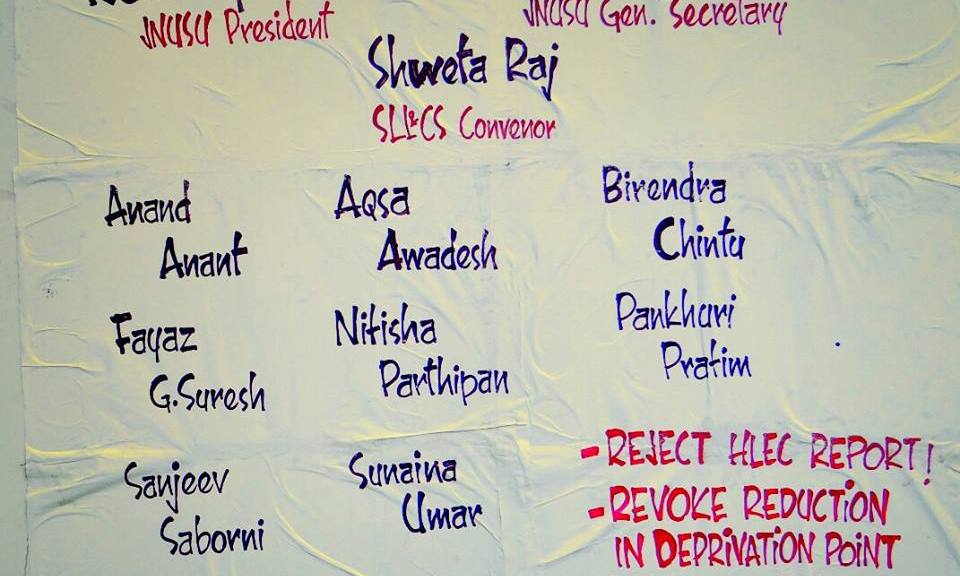 JNUSU President JNUSU Gen. Secretary
Shweta Raj
SLL&CS Convenor
Anand Aqsa Birendra
Anant Awadesh Chintu
Fayaz Nitisha Pankhuri
G.Suresh Parthipan Pratim
Sanjeev Sunaina
Saborni Umar
- REJECT HLEC REPORT!
- REVOKE REDUCTION
IN DEPRIVATION POINT